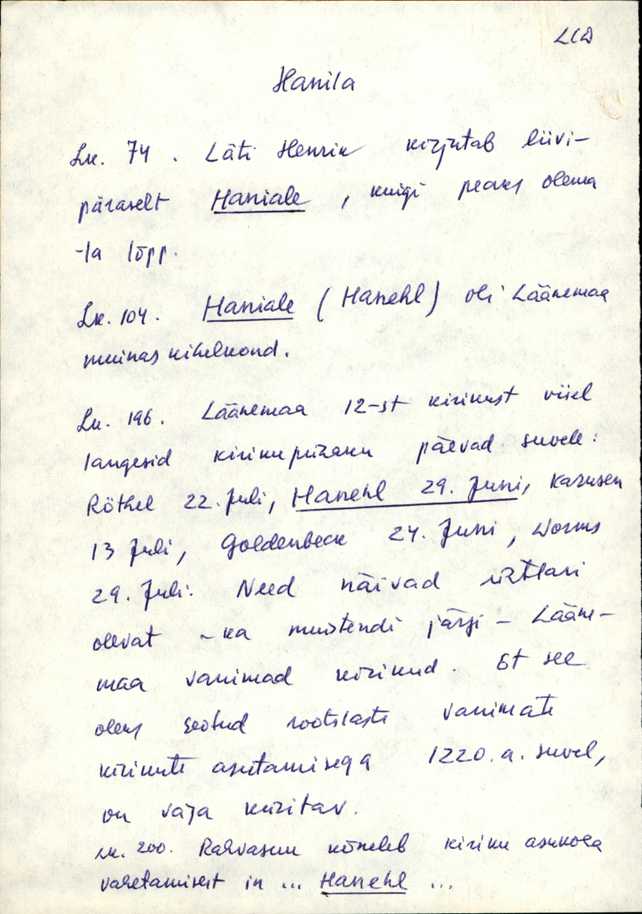 LCD
Hanila
Lk. 74. Läti Henrik kirjutab liivi-
päraselt Haniale, kuigi peaks olema
-la lõpp.
Lk. 104. Haniale (Hanehl) oli Läänemaa
muinaskihelkond.
Lk. 196. Läänemaa 12-st kirikust viiel
langesid kirikupühaku päevad suvele:
Röthel 22. Juli, Hanehl 29. Juni, Karusen
13 Juli, Goldenbeck 24. Juni, Worms
29. Juli. Need näivad
olevat - ka muistendi järgi - Lääne-
maa vanimad kirikud. Et see
oleks seotud rootslaste vanimate
kirikute asutamisega 1220. a. suvel,
on väga küsitav.
Lk. 200. Rahvasuu kõneleb kiriku asukoha
vahetamisest in ... Hanehl ...